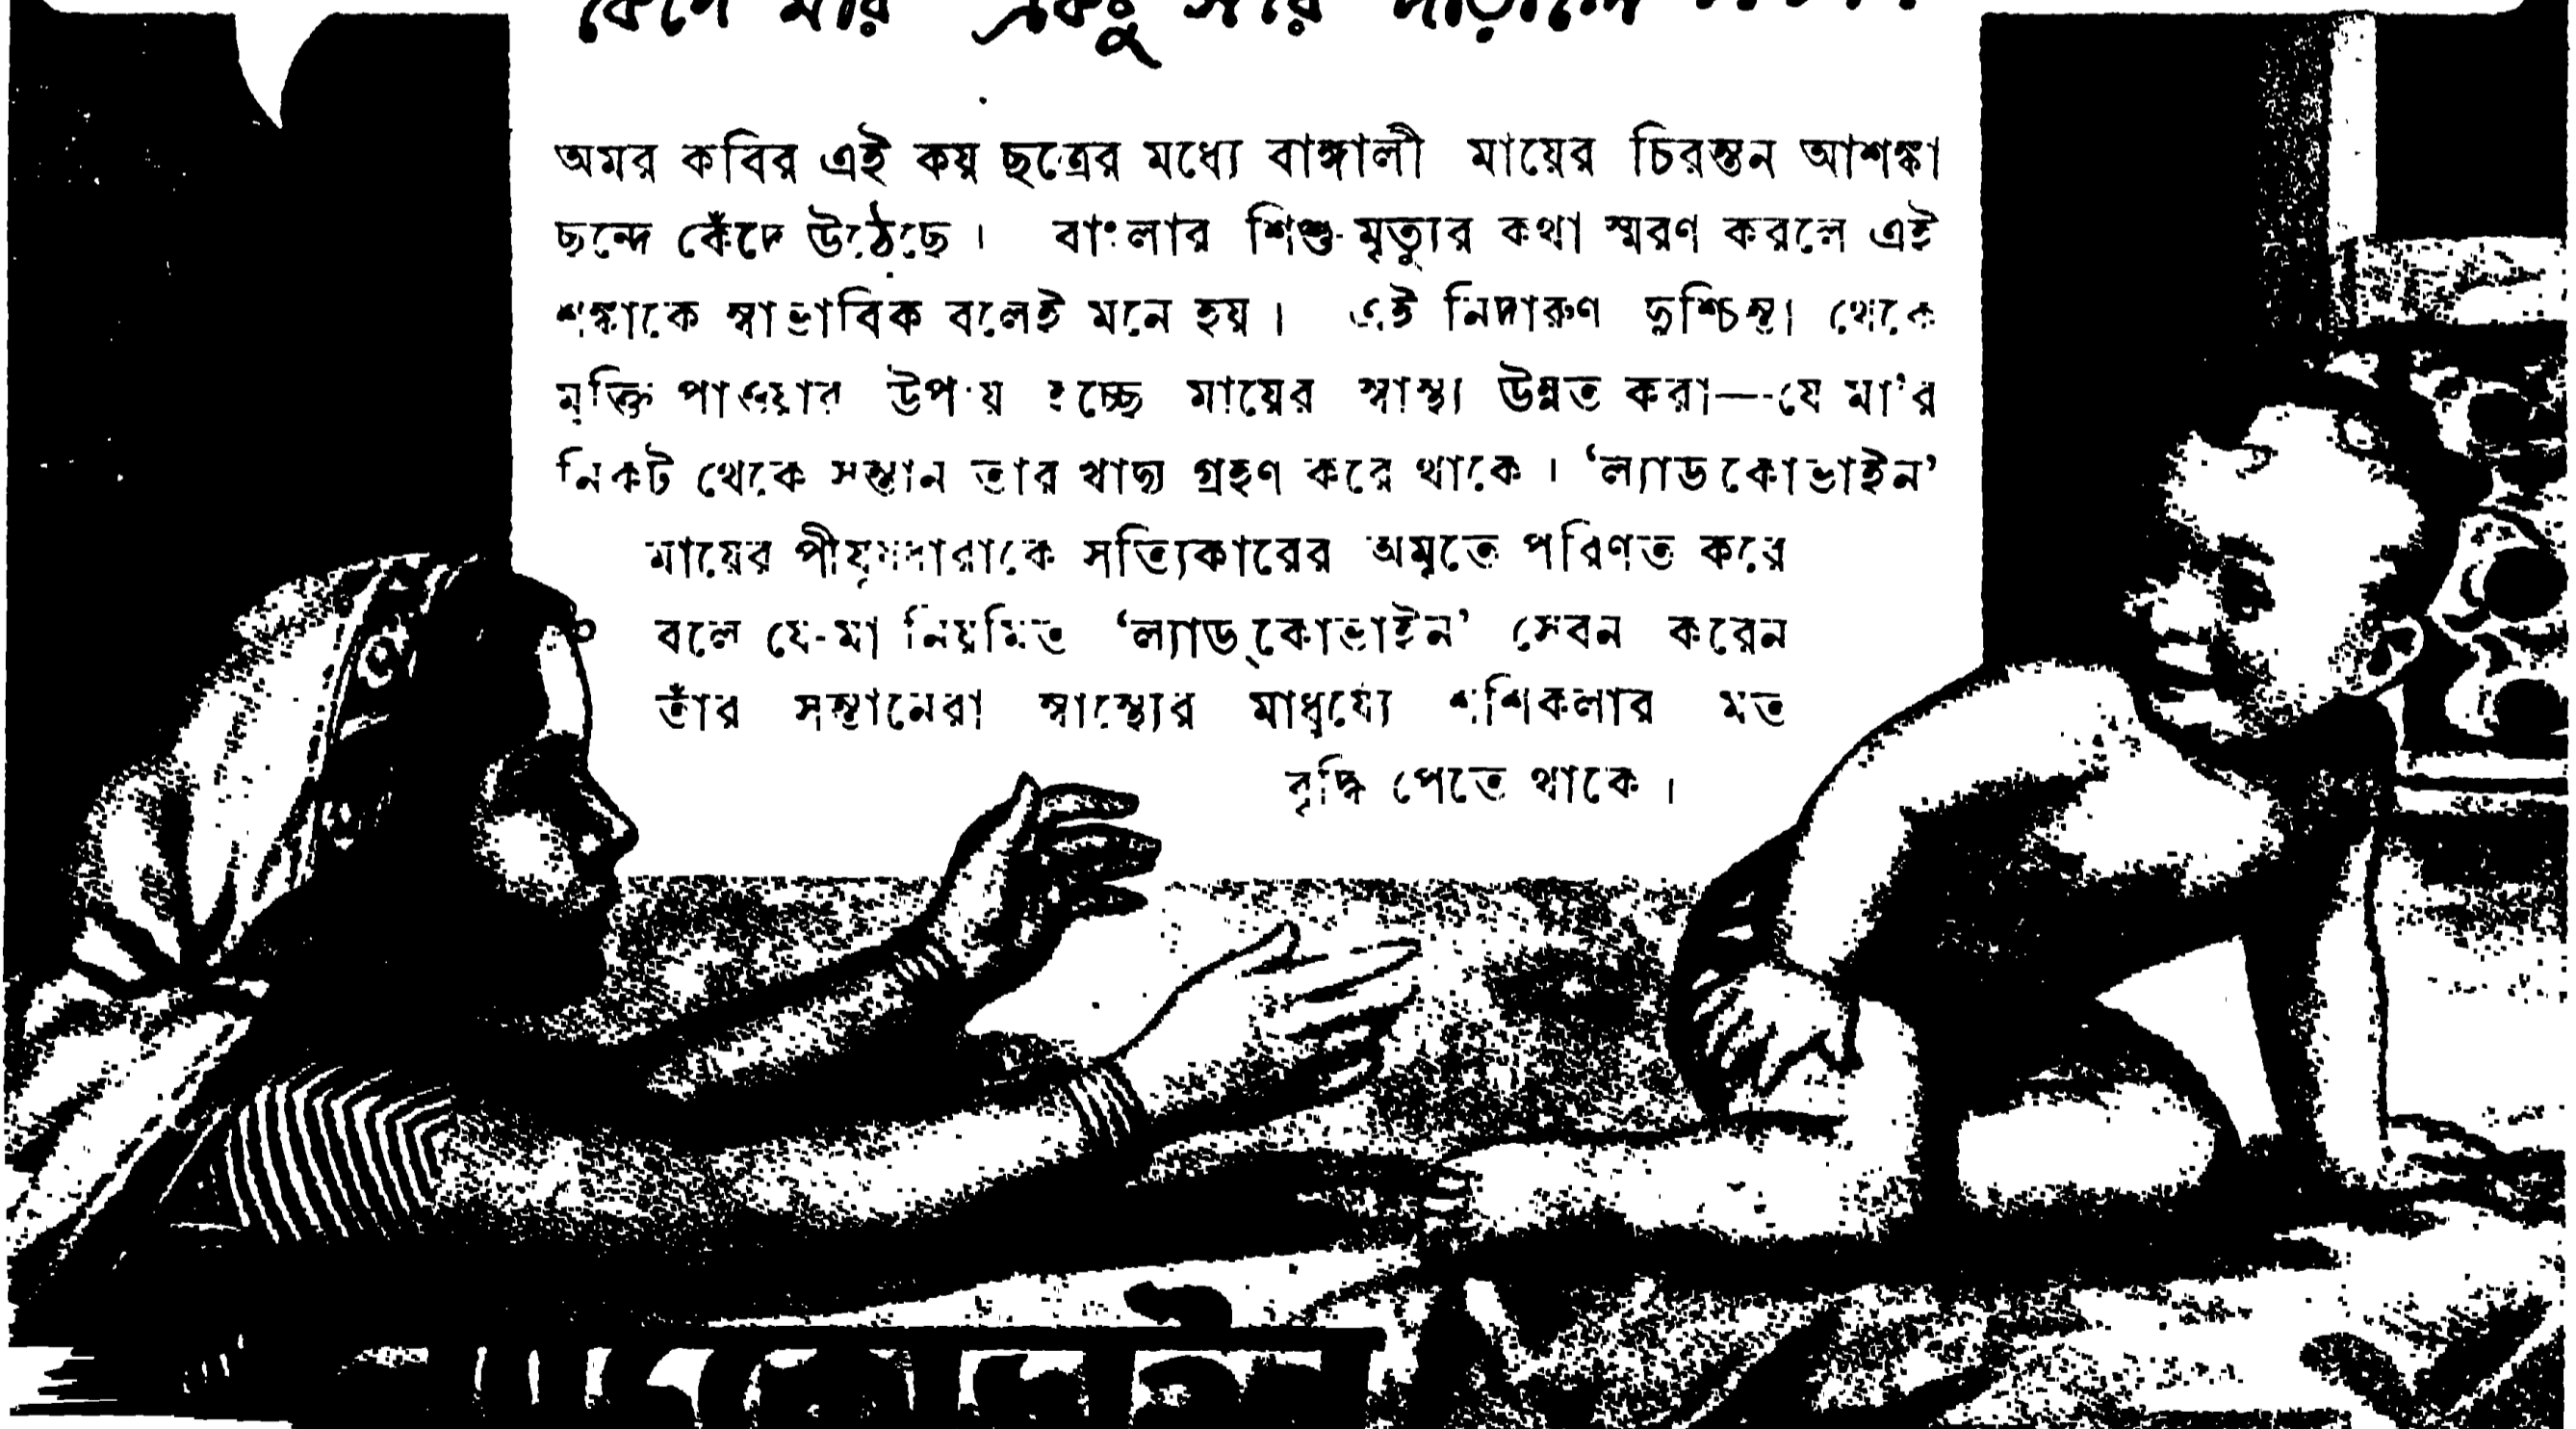 কেঁদে মরি একটু সরে দাঁড়ালে
অমর কবির এই কয় ছত্রের মধ্যে বাঙ্গালী মায়ের চিরন্তন আশঙ্কা
ছন্দে কেঁদে উঠেছে। বাংলার শিশু-মৃত্যুর কথা স্মরণ করলে এই
শঙ্কাকে স্বাভাবিক বলেই মনে হয়। এই নিদারুণ দুশ্চিন্তা থেকে
মুক্তি পাওয়ার উপায় হচ্ছে মায়ের স্বাস্থ্য উন্নত করা—যে মা'র
নিকট থেকে সন্তান তার খাদ্য গ্রহণ করে থাকে। ‘ল্যাডকোভাইন’
মায়ের পীযূষধারাকে সত্যিকারের অমৃতে পরিণত করে
বলে যে-মা নিয়মিত ‘ল্যাড্‌কোভাইন’ সেবন করেন
তাঁর সন্তানেরা স্বাস্থ্যের মাধুর্য্যে শশিকলার মত
বৃদ্ধি পেতে থাকে।